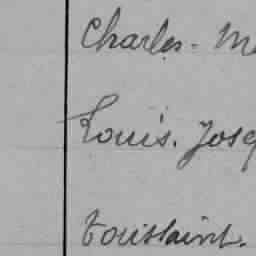 Charles - Ma
Louis. Josep
Toussaint.